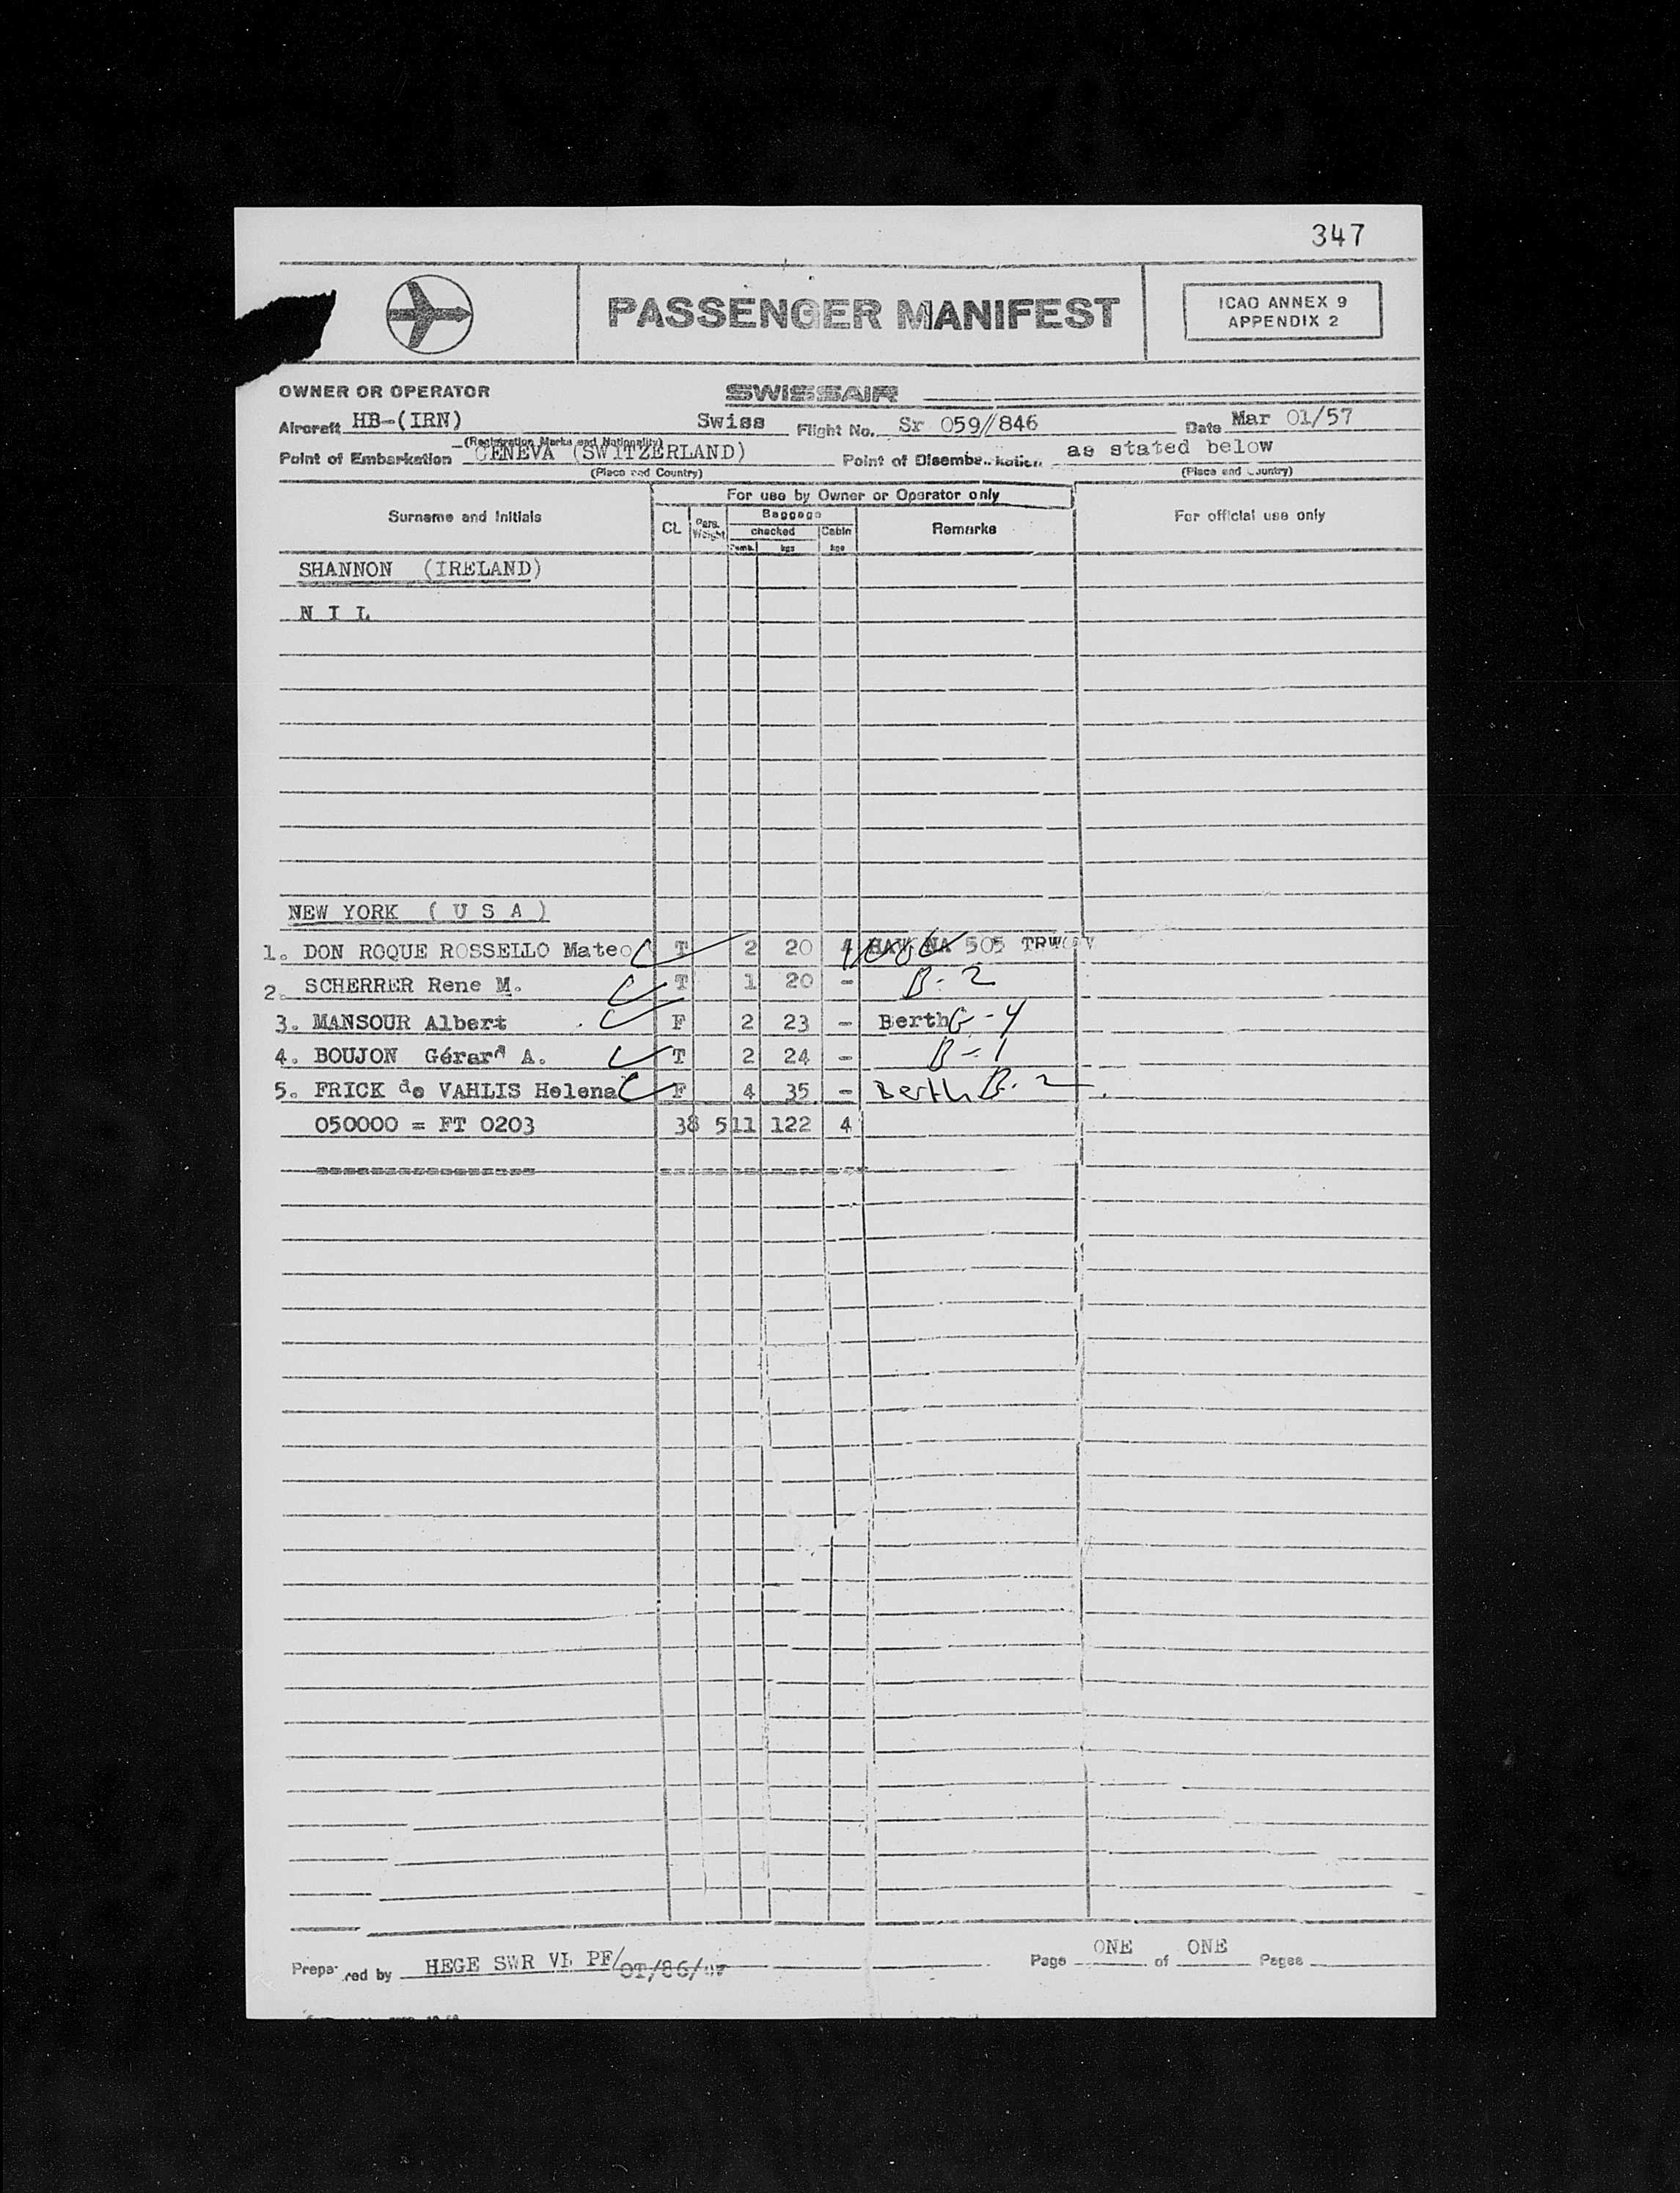 347
PASSENGER MANIFEST
ICAO ANNEX 9
APPENDIX 2
OWNER OR OPERATOR SWISSAIR
Aircraft HB-(IRN) Swiss Flight No. Sr 059//846 Date Mar 01/57
(Registration Marks and Nationality)
Point of Embarkation GENEVA (SWITZERLAND) Point of Disembarkation as stated below
(Place and Country) (Place and Country)
For use by Owner or Operator only
Surname and Initials CL Pass. Weight Baggage Remarks For official use only
checked Cabin
kgs kgs
SHANNON (IRELAND)
N I L
NEW YORK ( U S A )
1. DON ROQUE ROSSELLO Mateo T 2 20 4 NA 505
2. SCHERRER Rene M. T 1 20 - B-2
3. MANSOUR Albert F 2 23 - Berth
4. BOUJON Gérard A. T 2 24 - B-1
5. FRICK de VAHLIS Helena F 4 35 - Berth B-2
050000 = FT 0203 38 5 11 122 4
==================== ==================
Prepared by HEGE SWR VL PF/OT/86/
Page ONE of ONE Pages